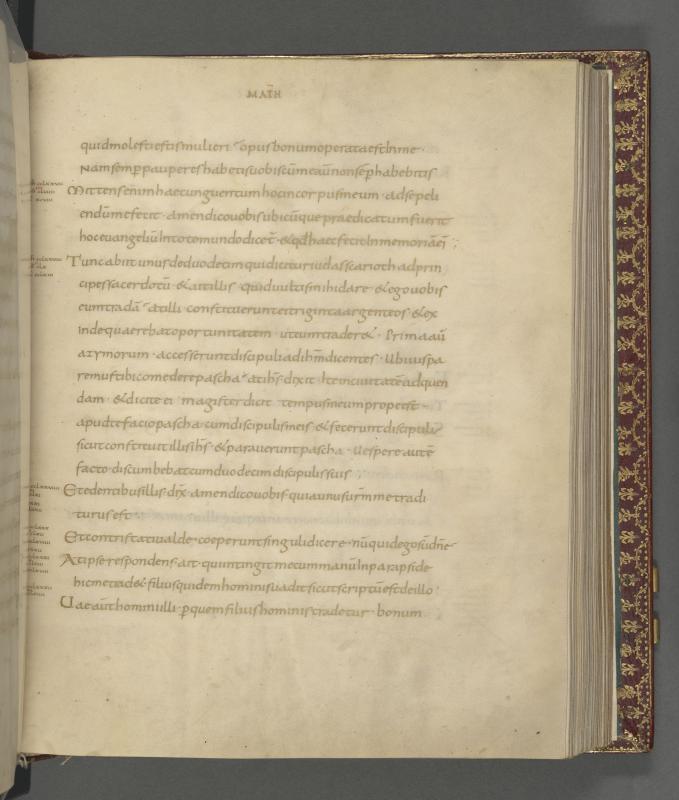 MATH
quid molesti estis mulieri · opus bonum operata est In me ·
Nam semp pauperes habetis uobiscū me aū non sep habebitis
Mittens enim haec unguentum hoc in corpus meum · ad sepeli
endūm e fecit · amen dico uobis ubicūque praedicatum fuerit
hoc euangeliū In toto mundo dicet̄ · & qđ haec fecit In memoriā eī
Tunc abiit unus de duodecim qui dicitur iudas scarioth ad prin
cipes sacerdotū · & ait illis · quid uultis mihi dare · & ego uobis
eum tradā · at illi constituerunt ei triginta argenteos · & ex
inde quaerebat oportunitatem · ut eum trader& · Prima aū
azymorum · accesserunt discipuli ad ihm̄ dicentes · Ubi uis pa
remus tibi comedere pascha · at ihs̄ dixit · Ite in ciuitatē ad quen
dam · & dicite ei magister dicit tempus meum prope est ·
apud te facio pascha cum discipulis meis · & fecerunt discipuli
sicut constituit illis ihs̄ · & parauerunt pascha · Uespere autē
facto · discumbebat cum duodecim discipulis suis
Et edentibus illis · dix̄ · amen dico uobis quia unus ur̄m me tradi
turus est
Et contristati ualde · coeperunt singuli dicere · nūquid ego sū dn̄e
At ipse respondens · ait · qui intingit mecum manū In parapside
hic me trad& · filius quidem hominis uadit sicut scriptū est de illo
Uae aūt homini illi · p quem filius hominis tradetur · bonum